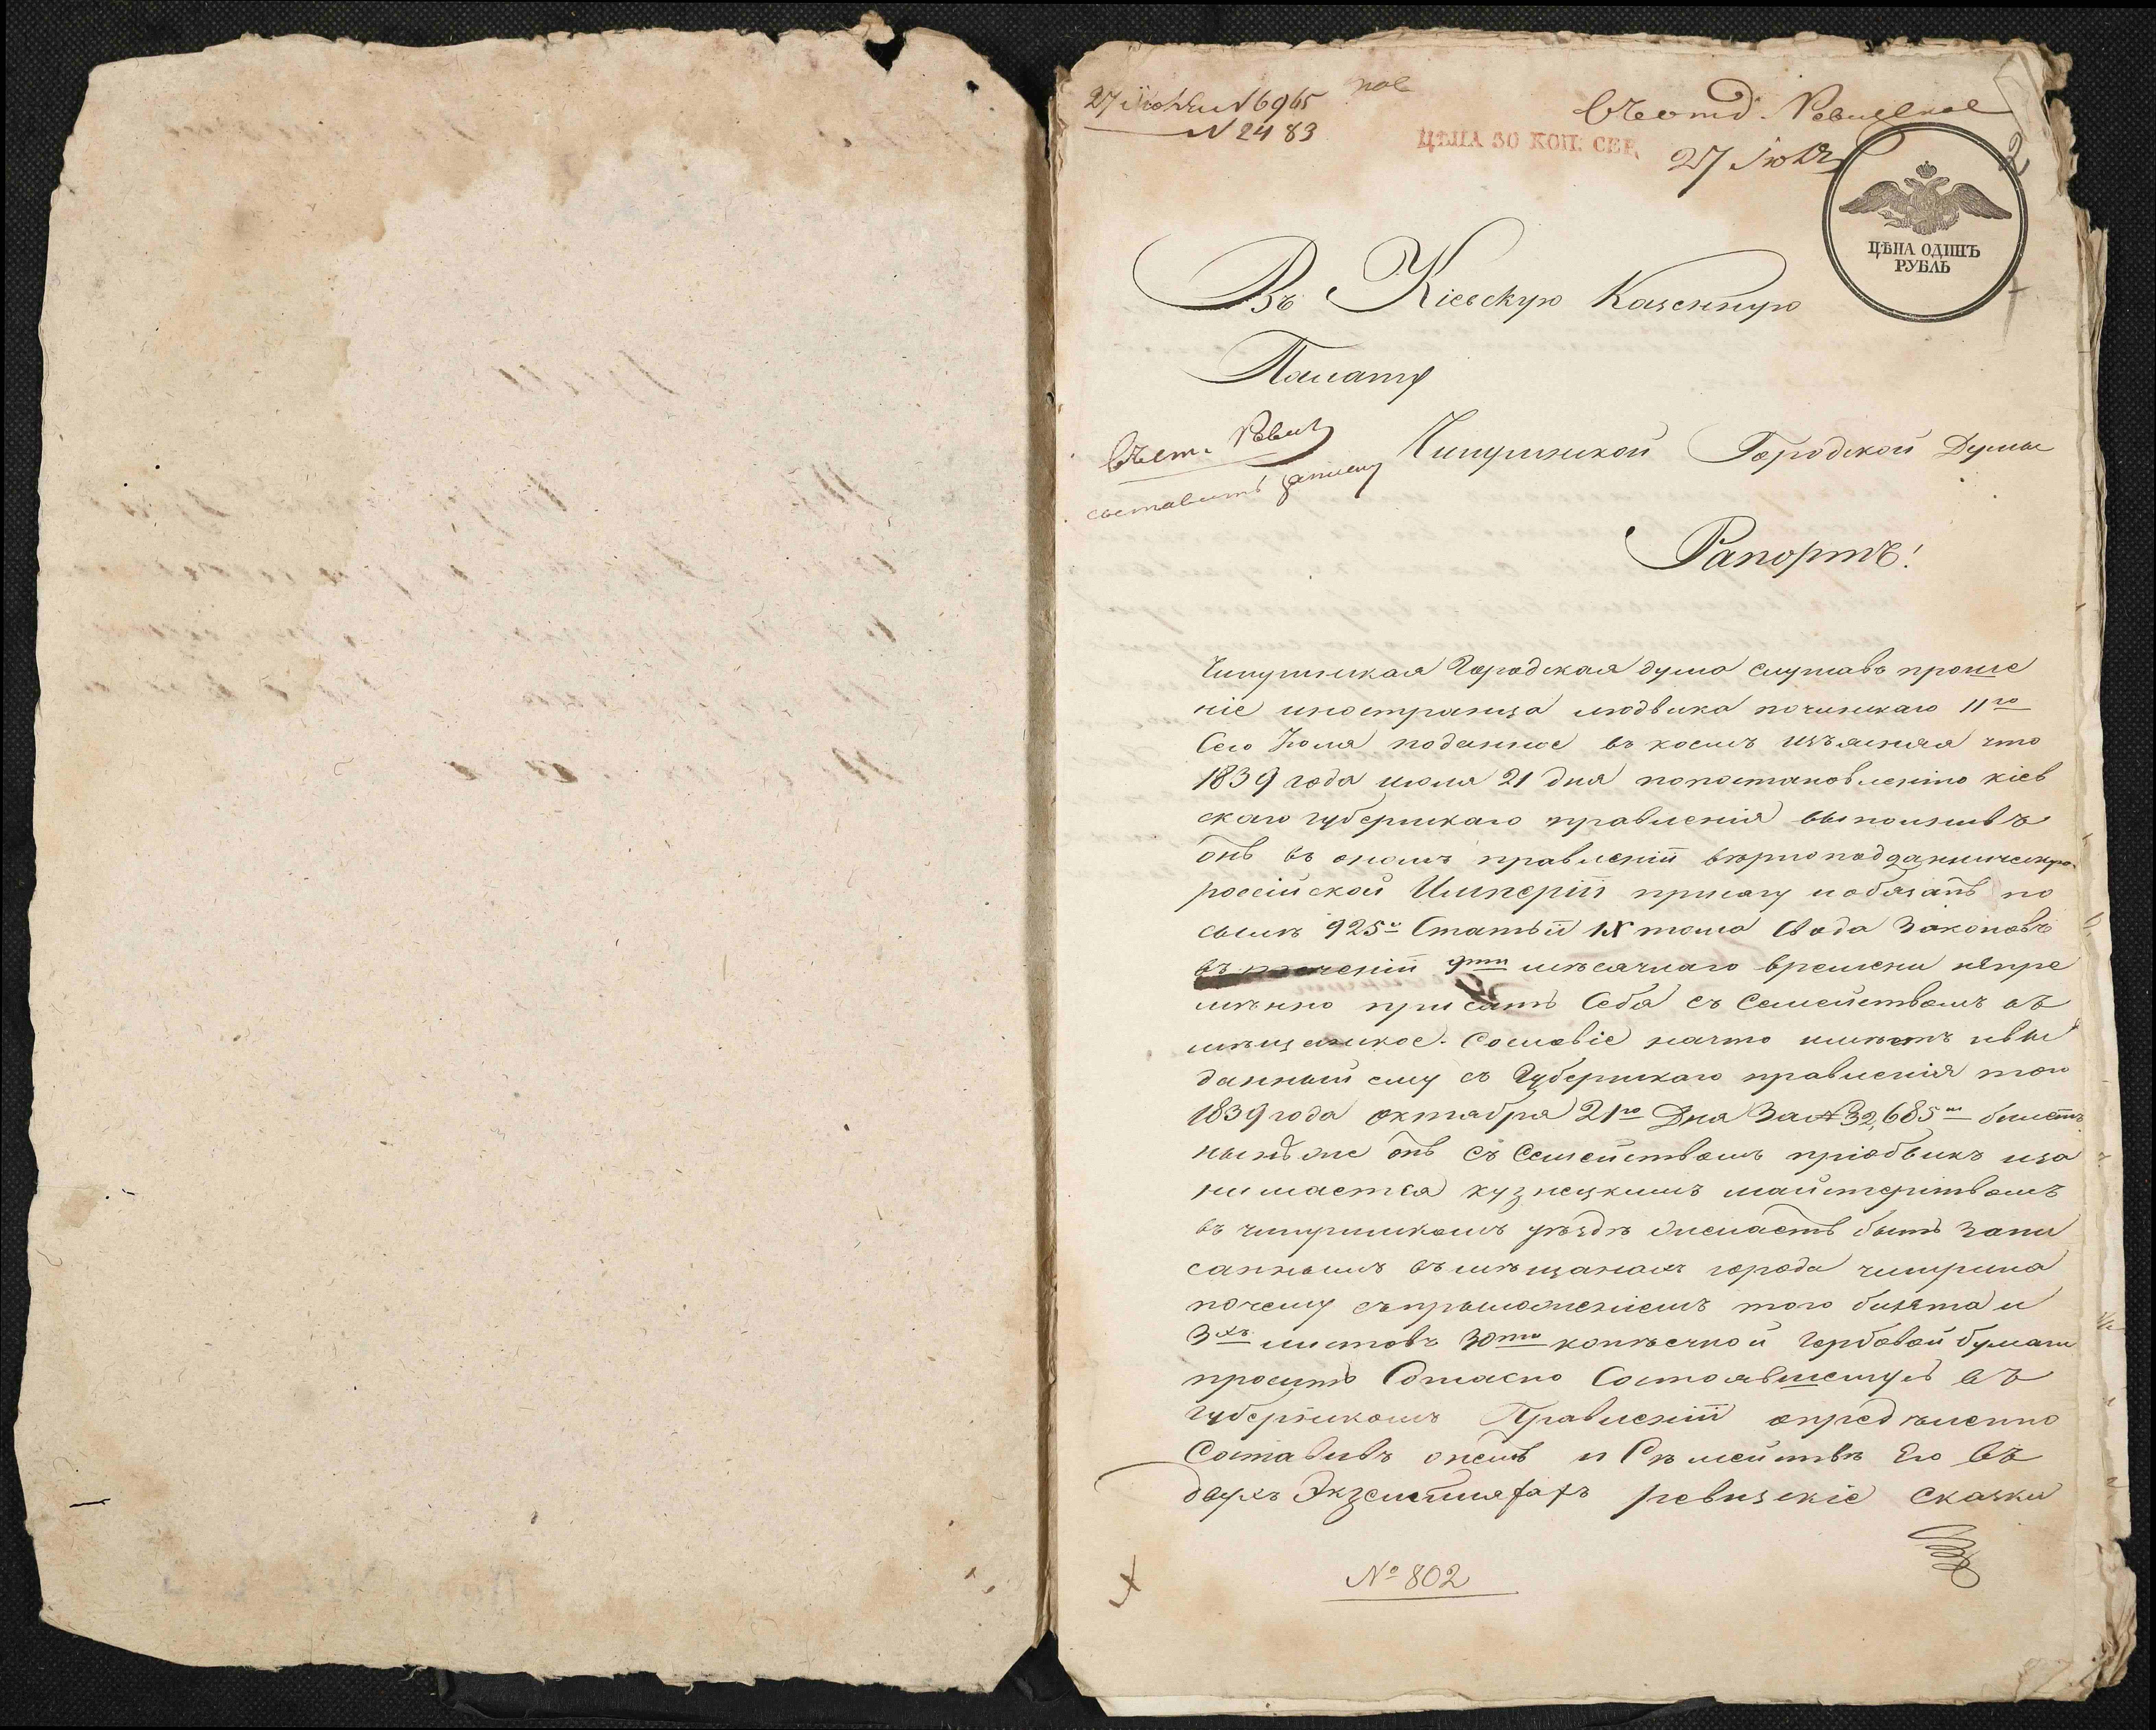 27 Июня N 6965
N 2483
пол
ЦѢНА 30 КОП. СЕР.
Въ отд. Ревизское
27 Июля
2
ЦѢНА ОДИНЪ
РУБЛЬ
Въ Кіевскую Казенную
Палату
Въ от. Ревиз
составить записку
Чигиринской Городской Думы
Рапортъ!
Чигиринская Городская дума слушавъ проше
ніе иностранца людвика 11го
Сего Іюля поданное въ коемъ изъясняя что
1839 года июля 21 дня попостановленію кіев
скаго губернскаго правленія выполнивъ
онъ въ ономъ правленіи вѣрноподданническую
россійской Имперіи присягу и обязанъ по
силѣ 925й Статьи IX тома Свода Законовъ
въ теченіи 9ти мѣсячнаго времени непре
мѣнно приписать Себя съ Семействомъ въ
мѣщанское Сословіе начто имѣетъ и вы
данный ему съ Губернскаго правленія того
1839 года октября 21го Дня За № 32,685м билетъ
нынѣ же онъ съ Семействомъ пріобвыкъ и за
нимается кузнецкимъ майстерствомъ
въ чигиринскомъ уѣздѣ желаетъ быть запи
саннымъ въ мѣщанахъ города чигирина
почему съ приложеніемъ того билета и
3хъ листовъ 30ти копѣечной гербовой бумаги
проситъ Согласно Состоявшемусь въ
Губернскомъ Правленіи опредѣленію
Составивъ онемъ и Семействѣ Его въ
двухъ Экземплярахъ ревизскіе сказки
№ 802